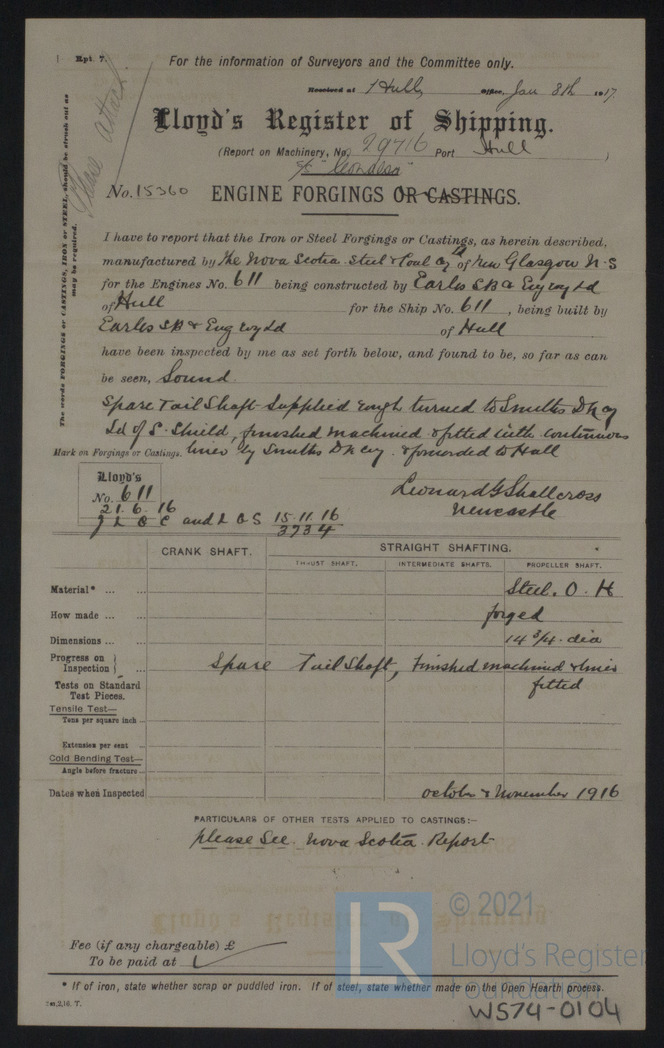 Rpt. 7.
For the information of Surveyors and the Committee only.
Please attach.
Received at Hull Office, Jan 8th 1917
Lloyd's Register of Shipping.
(Report on Machinery, No. 29716 Port Hull )
No. 15360 ENGINE FORGINGS OR CASTINGS.
The words FORGINGS or CASTINGS, IRON or STEEL, should be struck out as may be required.
I have to report that the Iron or Steel Forgings or Castings, as herein described,
manufactured by the Nova Scotia Steel & Coal Cy Ld of New Glasgow N-S
for the Engines No. 611 being constructed by Earles SB & Eng Coy Ld
of Hull for the Ship No. 611, being built by
Earles SB & Eng Coy Ld of Hull
have been inspected by me as set forth below, and found to be, so far as can
be seen, Sound.
Spare Tail Shaft supplied rough turned to Smiths Dk Cy
Ld of S. Shield, finished machined & fitted with continuous
Mark on Forgings or Castings. liner by Smiths Dk Cy. & forwarded to Hull
Lloyd's
No. 611
21.6.16
Leonard G Shallcross
Newcastle
and L G S 15.11.16
3734
CRANK SHAFT. STRAIGHT SHAFTING.
THRUST SHAFT. INTERMEDIATE SHAFTS. PROPELLER SHAFT.
Material* ... ... Steel. O. H
How made ... ... forged
Dimensions ... ... 14 3/4. dia
Progress on Inspection } ... Spare Tail Shaft, finished machined & liner
fitted
Tests on Standard Test Pieces.
Tensile Test—
Tons per square inch ..
Extension per cent ..
Cold Bending Test—
Angle before fracture ..
Dates when Inspected October & November 1916
PARTICULARS OF OTHER TESTS APPLIED TO CASTINGS:—
please See. Nova Scotia. Report
Fee (if any chargeable) £
To be paid at
* If of iron, state whether scrap or puddled iron. If of steel, state whether made on the Open Hearth process.
LR
© 2021
Lloyd's Register
Foundation
W574-0104